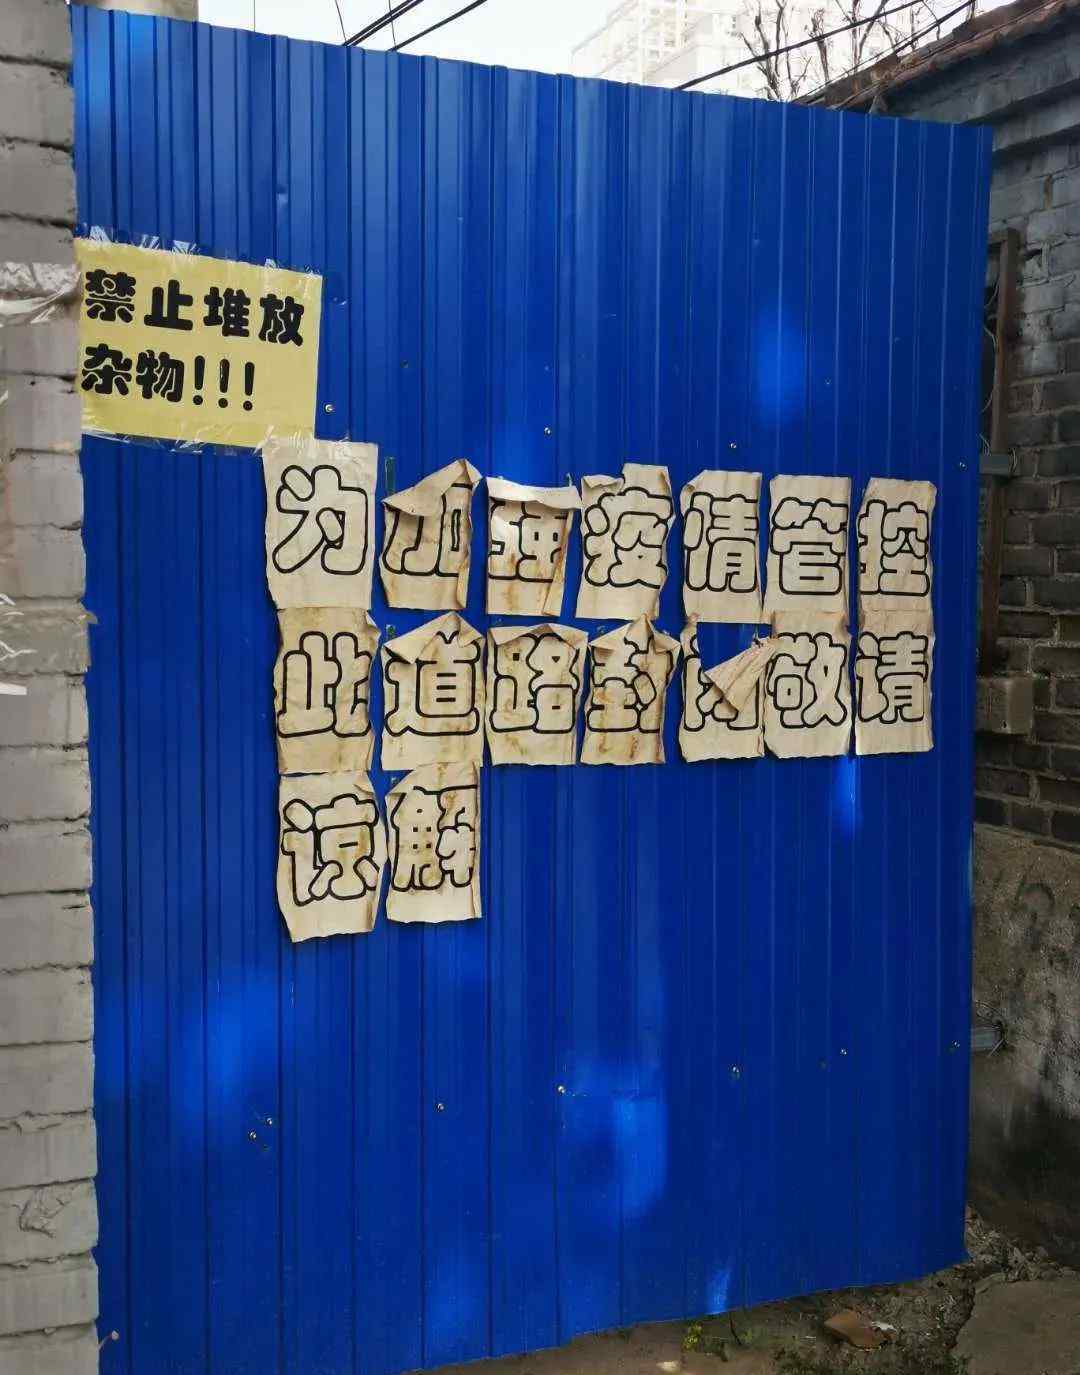 禁止堆放
杂物!!!
为加强疫情管控
此道路封闭敬请
谅解